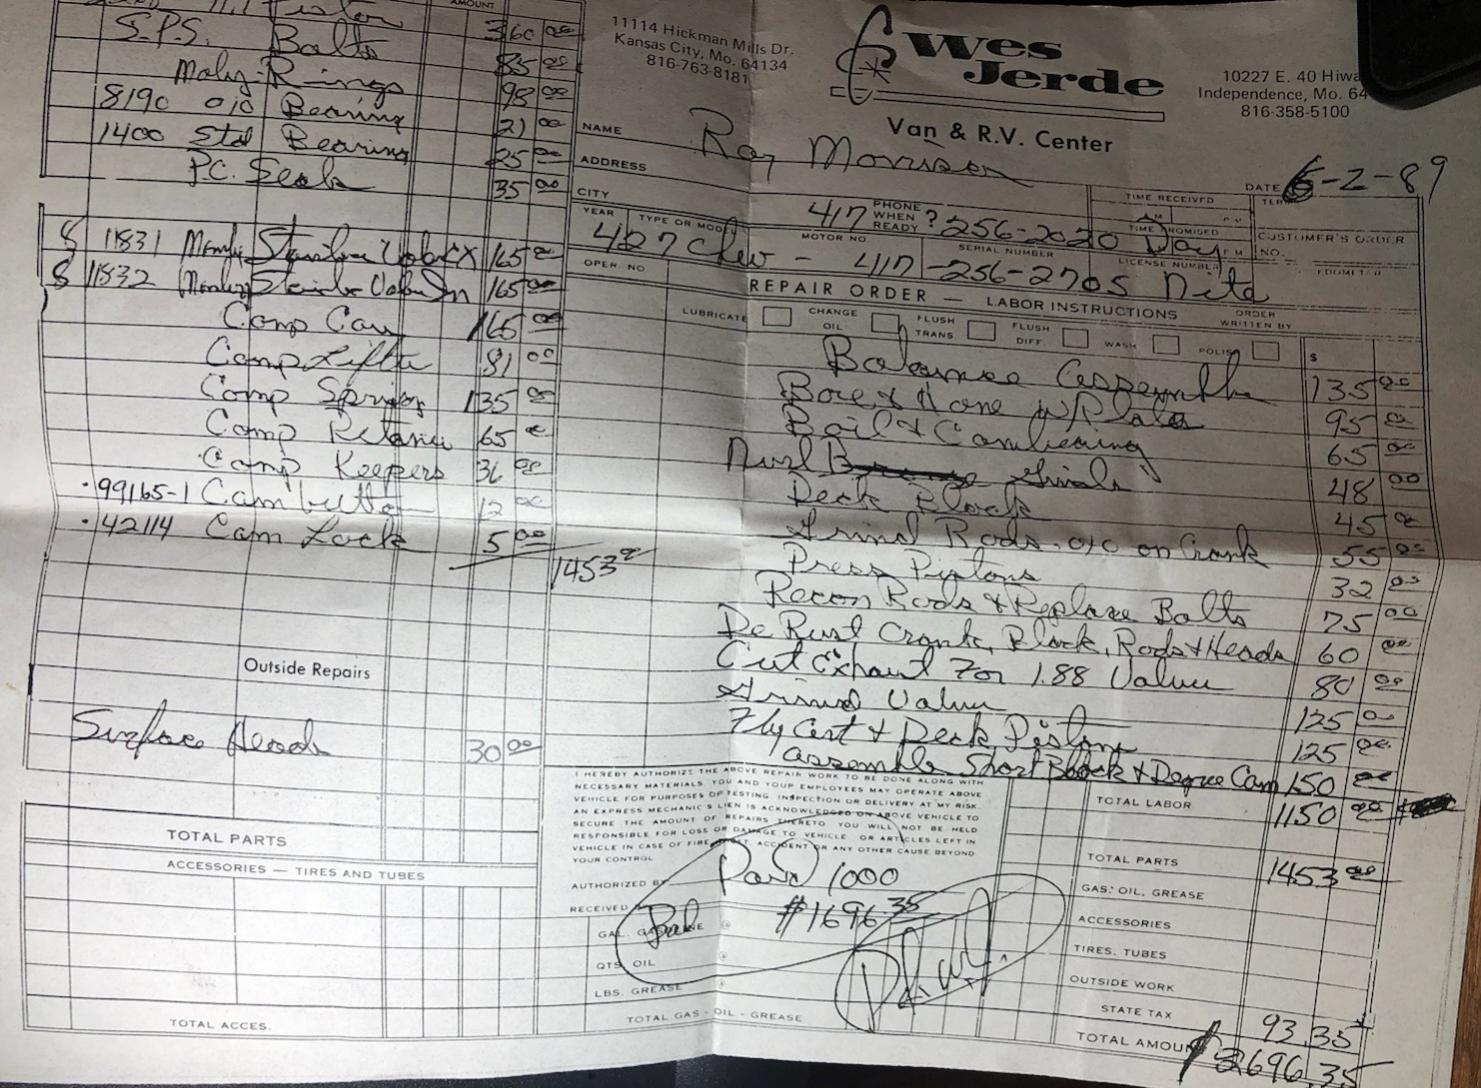 AMOUNT
Piston 360 00
S.P.S. Bolts 85 00
Moly-Rings 98 00
8190 010 Bearing 21 00
1400 Std Bearing 25 00
P.C. Seals 35 00
8 11831 Manley Stainless Valve Ex 165 00
8 11832 Manley Stainless Valve In 165 00
Comp Cam 165 00
Comp Lifter 81 00
Comp Springs 135 00
Comp Retainer 65
Comp Keepers 36 00
99165-1 Cam button 12 00
42114 Cam Lock 5 00
1453
Outside Repairs
Surface Heads 30 00
TOTAL PARTS
ACCESSORIES — TIRES AND TUBES
TOTAL ACCES.
11114 Hickman Mills Dr.
Kansas City, Mo. 64134
816-763-8181
Wes
Jerde
Van & R.V. Center
10227 E. 40 Hiwa
Independence, Mo. 64
816-358-5100
NAME Ray Morrison
DATE 6-2-89
ADDRESS
CITY
PHONE WHEN READY? 417 256-2020 Day
TIME RECEIVED
TIME PROMISED
CUSTOMER'S ORDER NO.
YEAR TYPE OR MODEL MOTOR NO SERIAL NUMBER LICENSE NUMBER
427 Chev - 417-256-2705 Nite
OPER. NO
REPAIR ORDER — LABOR INSTRUCTIONS
ORDER WRITTEN BY
LUBRICATE CHANGE OIL FLUSH TRANS FLUSH DIFF. WASH POLISH $
Balance Assembly 135 00
Bore & Hone w/Plate 95 00
Boil & Cambearing 65 00
Grind 48 00
Deck Block 45 00
Grind Rods on Crank 55 00
Press Pistons 32 00
Recon Rods & Replace Bolts 75 00
De Rust Crank, Block, Rods & Heads 60 00
Cut Exhaust For 1.88 Valve 80 00
Grind Valve 125 00
Fly Cut & Deck Pistons 125 00
Assemble Short Block & Degree Cam 150 00
I HEREBY AUTHORIZE THE ABOVE REPAIR WORK TO BE DONE ALONG WITH
NECESSARY MATERIALS. YOU AND YOUR EMPLOYEES MAY OPERATE ABOVE
VEHICLE FOR PURPOSES OF TESTING, INSPECTION OR DELIVERY AT MY RISK.
AN EXPRESS MECHANIC'S LIEN IS ACKNOWLEDGED ON ABOVE VEHICLE TO
SECURE THE AMOUNT OF REPAIRS THERETO. YOU WILL NOT BE HELD
RESPONSIBLE FOR LOSS OR DAMAGE TO VEHICLE OR ARTICLES LEFT IN
VEHICLE IN CASE OF FIRE, THEFT, ACCIDENT OR ANY OTHER CAUSE BEYOND
YOUR CONTROL
AUTHORIZED BY
RECEIVED
Paid 1000
Bal #1696.35
GAL. GASOLINE
QTS. OIL
LBS. GREASE
TOTAL GAS - OIL - GREASE
TOTAL LABOR 1150 00
TOTAL PARTS 1453 00
GAS: OIL, GREASE
ACCESSORIES
TIRES. TUBES
OUTSIDE WORK
STATE TAX 93.35
TOTAL AMOUNT $2696.35